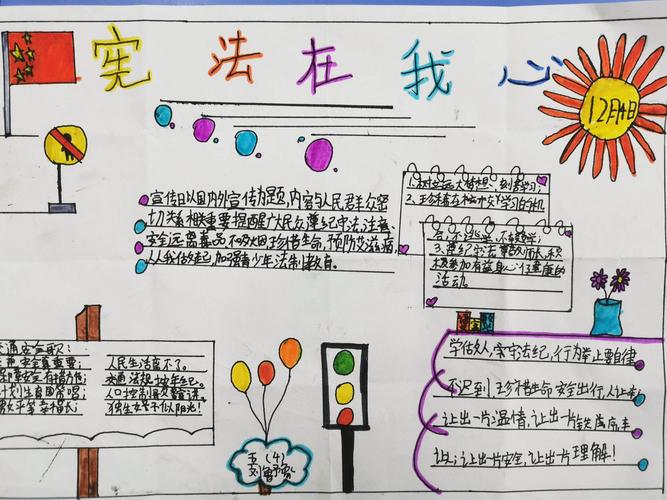 宪法在我心
12月4日
宣传日以国内外宣传为题,内容与人民群众密
切关系相关重要提醒广大民众遵纪守法,注意
安全远离毒品不吸烟珍惜生命,预防艾滋病,
人人我做起,加强青少年法制教育。
1.树立远大梦想 刻苦学习;
2、珍惜在校 学习
3.遵纪守法尊敬师长,积
极参加有益身心健康的
活动
通安全歌:
安全真重要;
人民生活离不了。
交通法规按年纪。
人口控制又
独生女孩不似阳光!
五(4)
学做人,宗守法纪,行为举止要自律
不迟到,珍惜生命,安全出行,人让车;
让出一片温情,让出一片
让出一片安全,让出一片理解!